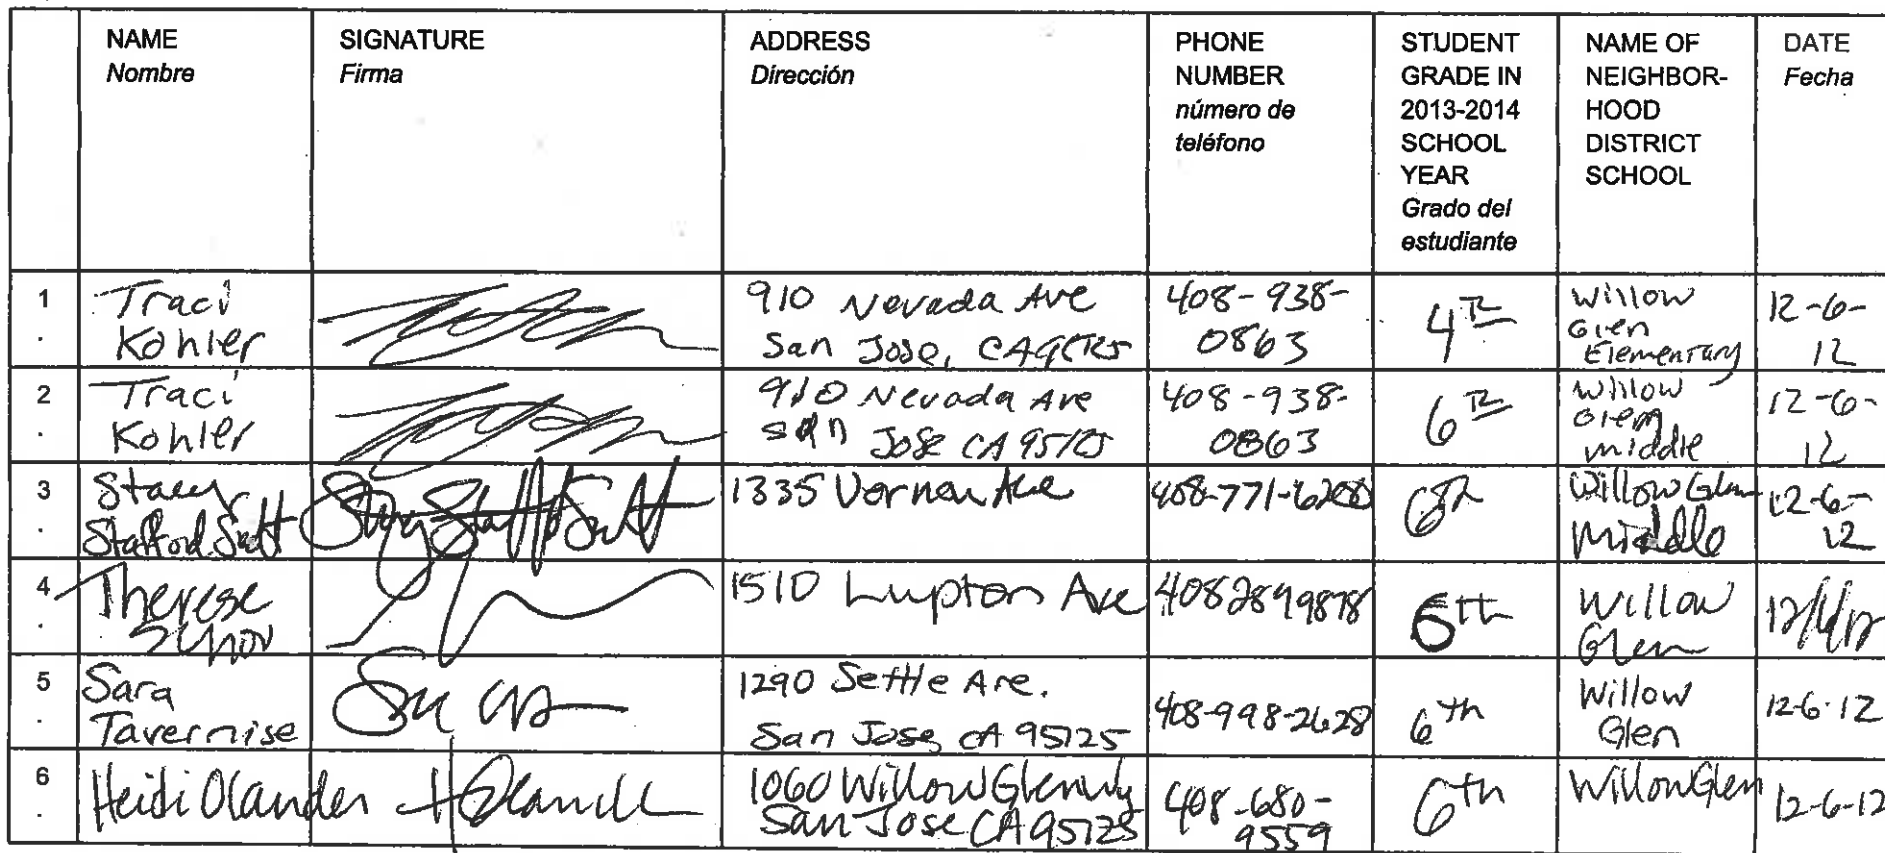 NAME
Nombre
SIGNATURE
Firma
ADDRESS
Dirección
PHONE
NUMBER
número de
teléfono
STUDENT
GRADE IN
2013-2014
SCHOOL
YEAR
Grado del
estudiante
NAME OF
NEIGHBOR-
HOOD
DISTRICT
SCHOOL
DATE
Fecha
1
.
Traci
Kohler
910 Nevada Ave
San Jose, CA
408-938-
0863
4th
Willow
Glen
Elementary
12-6-
12
2
.
Traci
Kohler
910 Nevada Ave
San Jose CA 95125
408-938-
0863
6th
Willow
Glen
middle
12-6-
12
3
.
Stacey
Stafford Scott
1335 Vernon Ave
408-771-
6th
Willow Glen
Middle
12-6-
12
4
.
Therese
1510 Lupton Ave
4082899878
6th
Willow
Glen
12/6/12
5
.
Sara
Tavernise
1290 Settle Ave.
San Jose, CA 95125
408-998-2628
6th
Willow
Glen
12-6-12
6
.
Heidi Olander
H Olander
1060 Willow Glen Wy
San Jose CA 95125
408-680-
9559
6th
Willow Glen
12-6-12